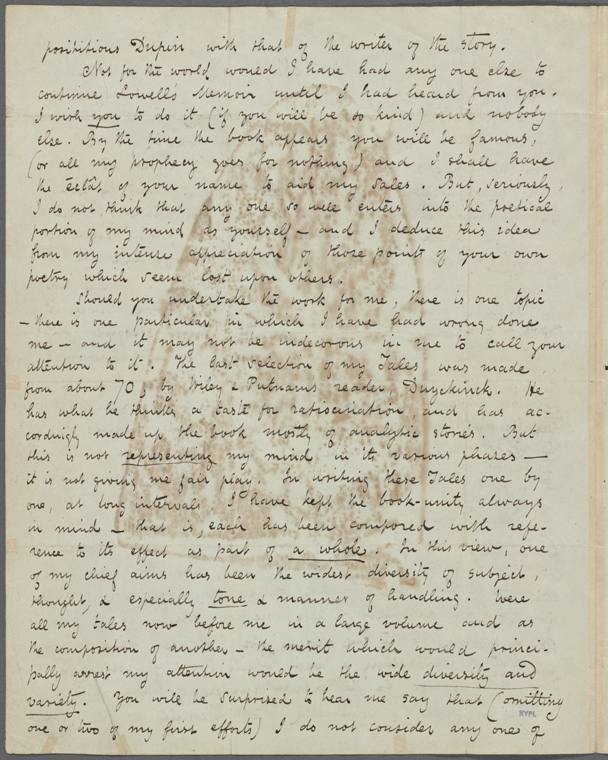 posititious Dupin with that of the writer of the story.
Not for the world would I have had any one else to
continue Lowell's Memoir until I had heard from you.
I wish you to do it (if you will be so kind) and nobody
else. By the time the book appears you will be famous,
(or all my prophecy goes for nothing) and I shall have
the éclât of your name to aid my sales. But, seriously,
I do not think that any one so well enters into the poetical
portion of my mind as yourself — and I deduce this idea
from my intense appreciation of those points of your own
poetry which seem lost upon others.
Should you undertake the work for me, there is one topic
— there is one particular in which I have had wrong done
me — and it may not be indecorous in me to call your
attention to it. The last selection of my Tales was made
from about 70, by Wiley & Putnam's reader, Duyckinck. He
has what he thinks a taste for ratiocination, and has ac-
cordingly made up the book mostly of analytic stories. But
this is not representing my mind in its various phases —
it is not giving me fair play. In writing these Tales one by
one, at long intervals, I have kept the book-unity always
in mind — that is, each has been composed with refe-
rence to its effect as part of a whole. In this view, one
of my chief aims has been the widest diversity of subject,
thought, & especially tone & manner of handling. Were
all my tales now before me in a large volume and as
the composition of another — the merit which would princi-
pally arrest my attention would be the wide diversity and
variety. You will be surprised to hear me say that (omitting
NYPL
one or two of my first efforts) I do not consider any one of